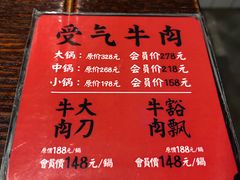 受气牛肉
大锅：原价328元 会员价278元
中锅：原价268元 会員价218元
小锅：原价198元 會員价158元
牛肉大刀 牛肉豁飘
原價188元/鍋 原價188元/鍋
會員價148元/鍋 會員價148元/鍋